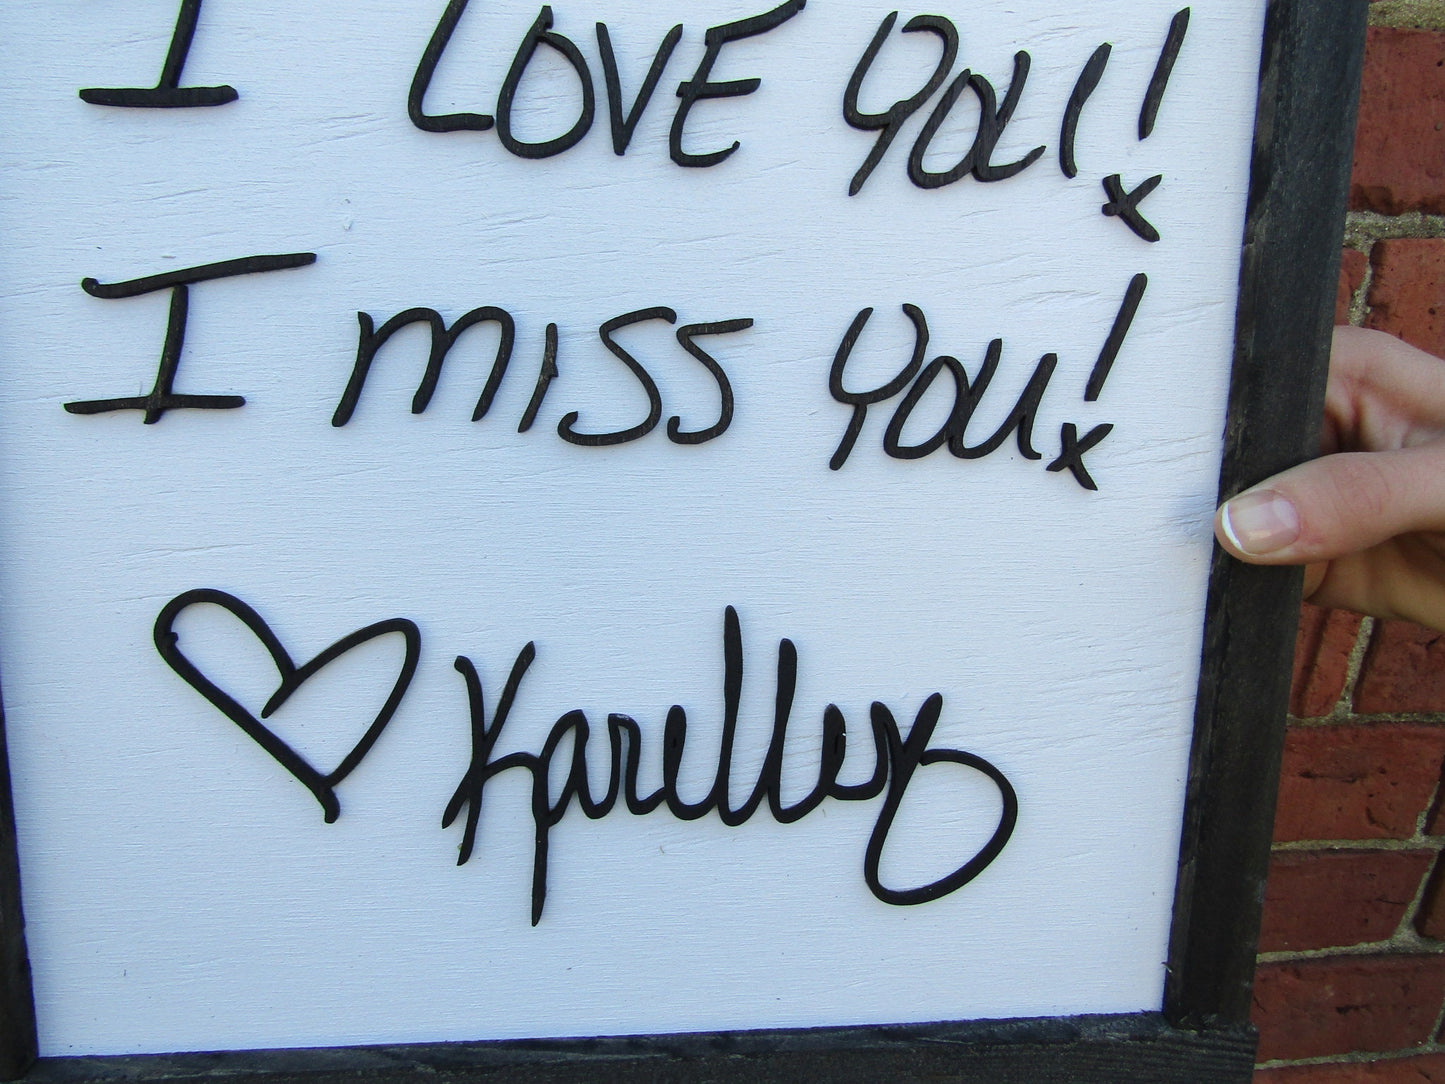 I LOVE YOU!!
I MISS YOU!
♡ Karelley